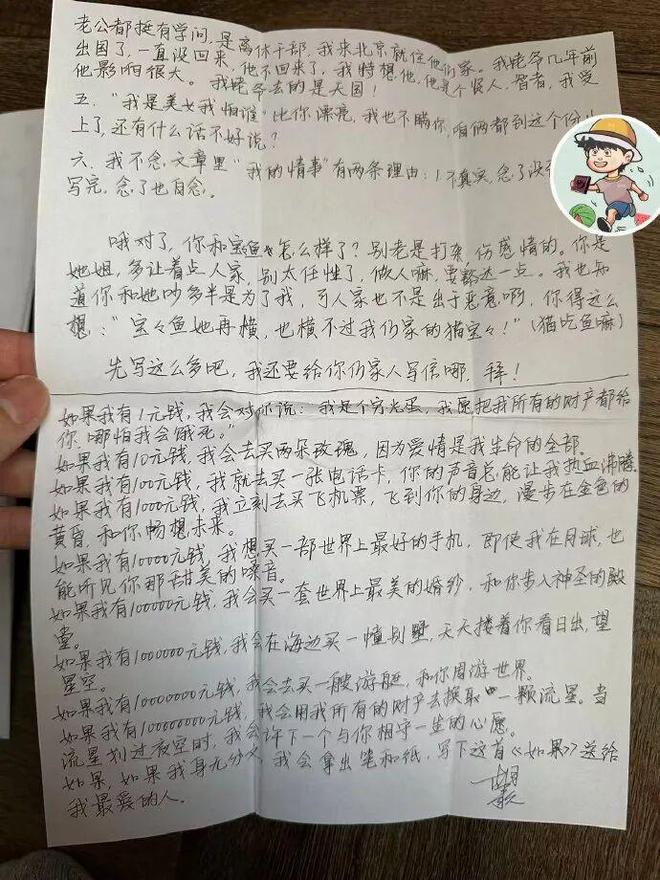 老公都挺有学问,是离休干部,我来北京就住他们家。我姥爷几年前
出国了,一直没回来,他不回来了,我特想他,他是个贤人,智者,我受
他影响很大。我姥爷去的是天国!
五."我是美女我怕谁"比你漂亮,我也不瞒你,咱俩都到这个份儿
上了,还有什么话不好说?
六.我不念文章里"我的情事"有两条理由:1不真实,念了没
写完,念了也白念。
哦对了,你和宝鱼々怎么样了?别老是打架,伤感情的。你是
她姐,多让着点人家,别太任性了,做人嘛,要豁达一点。我也知
道你和她吵多半是为了我,可人家也不是出于恶意啊,你得这么
想:"宝々鱼她再横,也横不过我们家的猫宝々!"(猫吃鱼嘛)
先写这么多吧,我还要给你们家人写信哪,拜!
如果我有1元钱,我会对你说:我是个穷光蛋,我愿把我所有的财产都给
你,哪怕我会饿死。"
如果我有10元钱,我会去买两朵玫瑰,因为爱情是我生命的全部。
如果我有100元钱,我就去买一张电话卡,你的声音总能让我热血沸腾。
如果我有1000元钱,我立刻去买飞机票,飞到你的身边,漫步在金色的
黄昏,和你畅想未来。
如果我有10000元钱,我想买一部世界上最好的手机,即使我在月球,也
能听见你那甜美的嗓音。
如果我有100000元钱,我会买一套世界上最美的婚纱,和你步入神圣的殿
堂。
如果我有1000000元钱,我会在海边买一幢别墅,天天搂着你看日出,望
星空。
如果我有10000000元钱,我会去买一艘游艇,和你周游世界。
如果我有100000000元钱,我会用我所有的财产去换取一颗流星。当
流星划过夜空时,我会许下一个与你相守一生的心愿。
如果,如果我身无分文,我会拿出笔和纸,写下这首《如果》送给
我最爱的人。